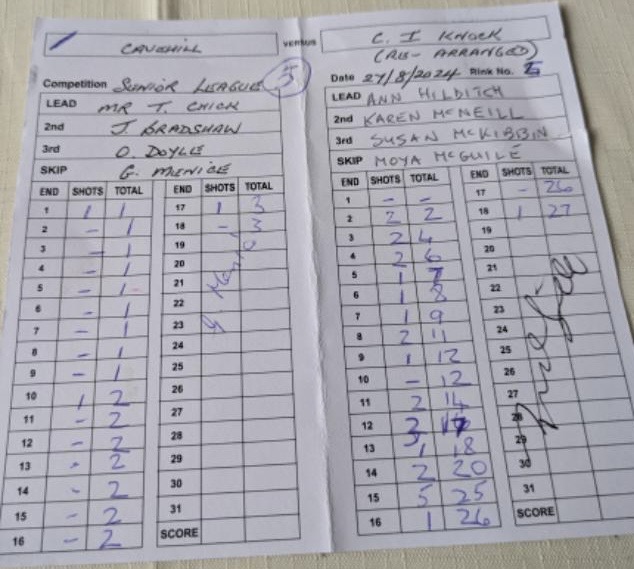 CAVEHILL
VERSUS
C. I KNOCK
(RE-ARRANGED)
Competition SENIOR LEAGUE 5
Date 27/8/2024 Rink No. 5
LEAD MR T. CHICK
2nd J. BRADSHAW
3rd O. DOYLE
SKIP G.
LEAD ANN HILDITCH
2nd KAREN McNEILL
3rd SUSAN McKIBBIN
SKIP MOYA McGUILE
END SHOTS TOTAL
1 1 1
2 - 1
3 - 1
4 - 1
5 - 1
6 - 1
7 - 1
8 - 1
9 - 1
10 1 2
11 - 2
12 - 2
13 - 2
14 - 2
15 - 2
16 - 2
END SHOTS TOTAL
17 1 3
18 - 3
19
20
21
22
23
24
25
26
27
28
29
30
31
SCORE
END SHOTS TOTAL
1 - -
2 2 2
3 2 4
4 2 6
5 1 7
6 1 8
7 1 9
8 2 11
9 1 12
10 - 12
11 2 14
12 3 17
13 1 18
14 2 20
15 5 25
16 1 26
END SHOTS TOTAL
17 - 26
18 1 27
19
20
21
22
23
24
25
26
27
28
29
30
31
SCORE